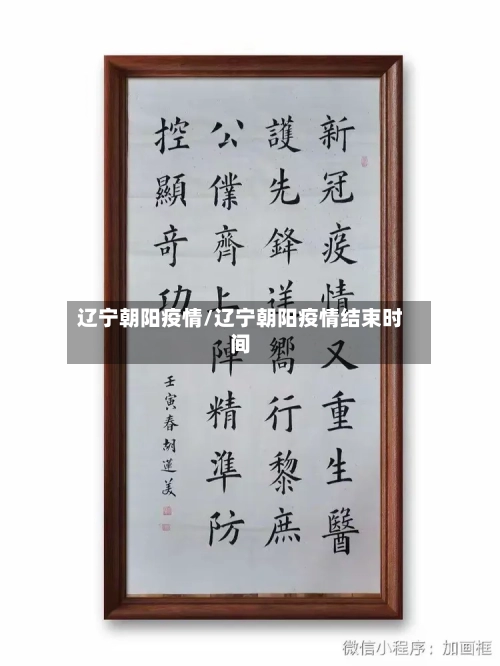 新冠疫情又重生醫
護先鋒逆嚮行黎庶
公僕齊上陣精準防
控顯奇功
壬寅春胡蓮美
辽宁朝阳疫情/辽宁朝阳疫情结束时
间
微信小程序：加画框